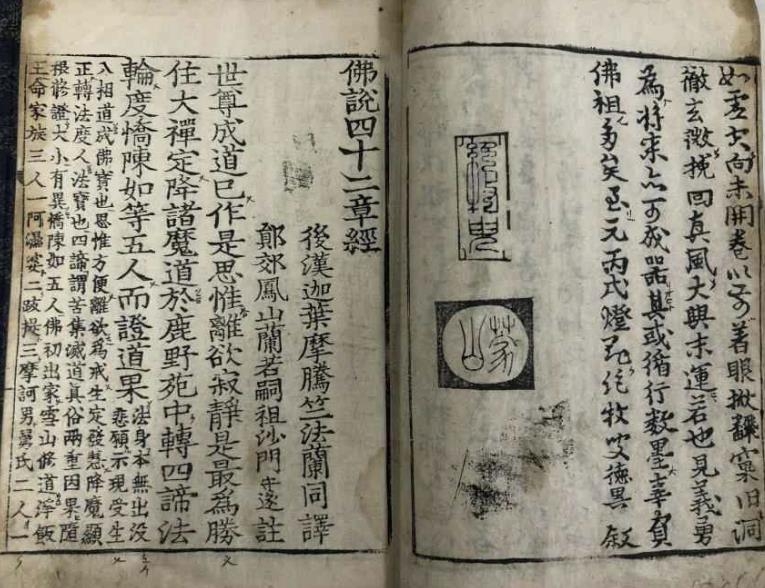 向未開卷以前着眼掀飜窠旧洞
徹玄微挽回真風大興末運若也見義勇
為將來亦可成器其或循行數墨辜負
佛祖多矣至元丙戌燈節絕牧叟德異敘
絕牧叟
蒙山
佛說四十二章經
後漢迦葉摩騰竺法蘭同譯
鄭郊鳳山蘭若嗣祖沙門守遂註
世尊成道已作是思惟離欲寂靜是最為勝
住大禪定降諸魔道於鹿野苑中轉四諦法
輪度憍陳如等五人而證道果
法身本無出没
悲願示現受生
八相道成佛寶也思惟方便離欲為戒生定發慧降魔顯
正轉法度人法寶也四諦謂苦集滅道真俗兩重因果隨
根修證大小有異憍陳如五人佛初出家雪山修道淨飯
王命家族三人一阿濕婆二跋提三摩訶男舅氏二人一